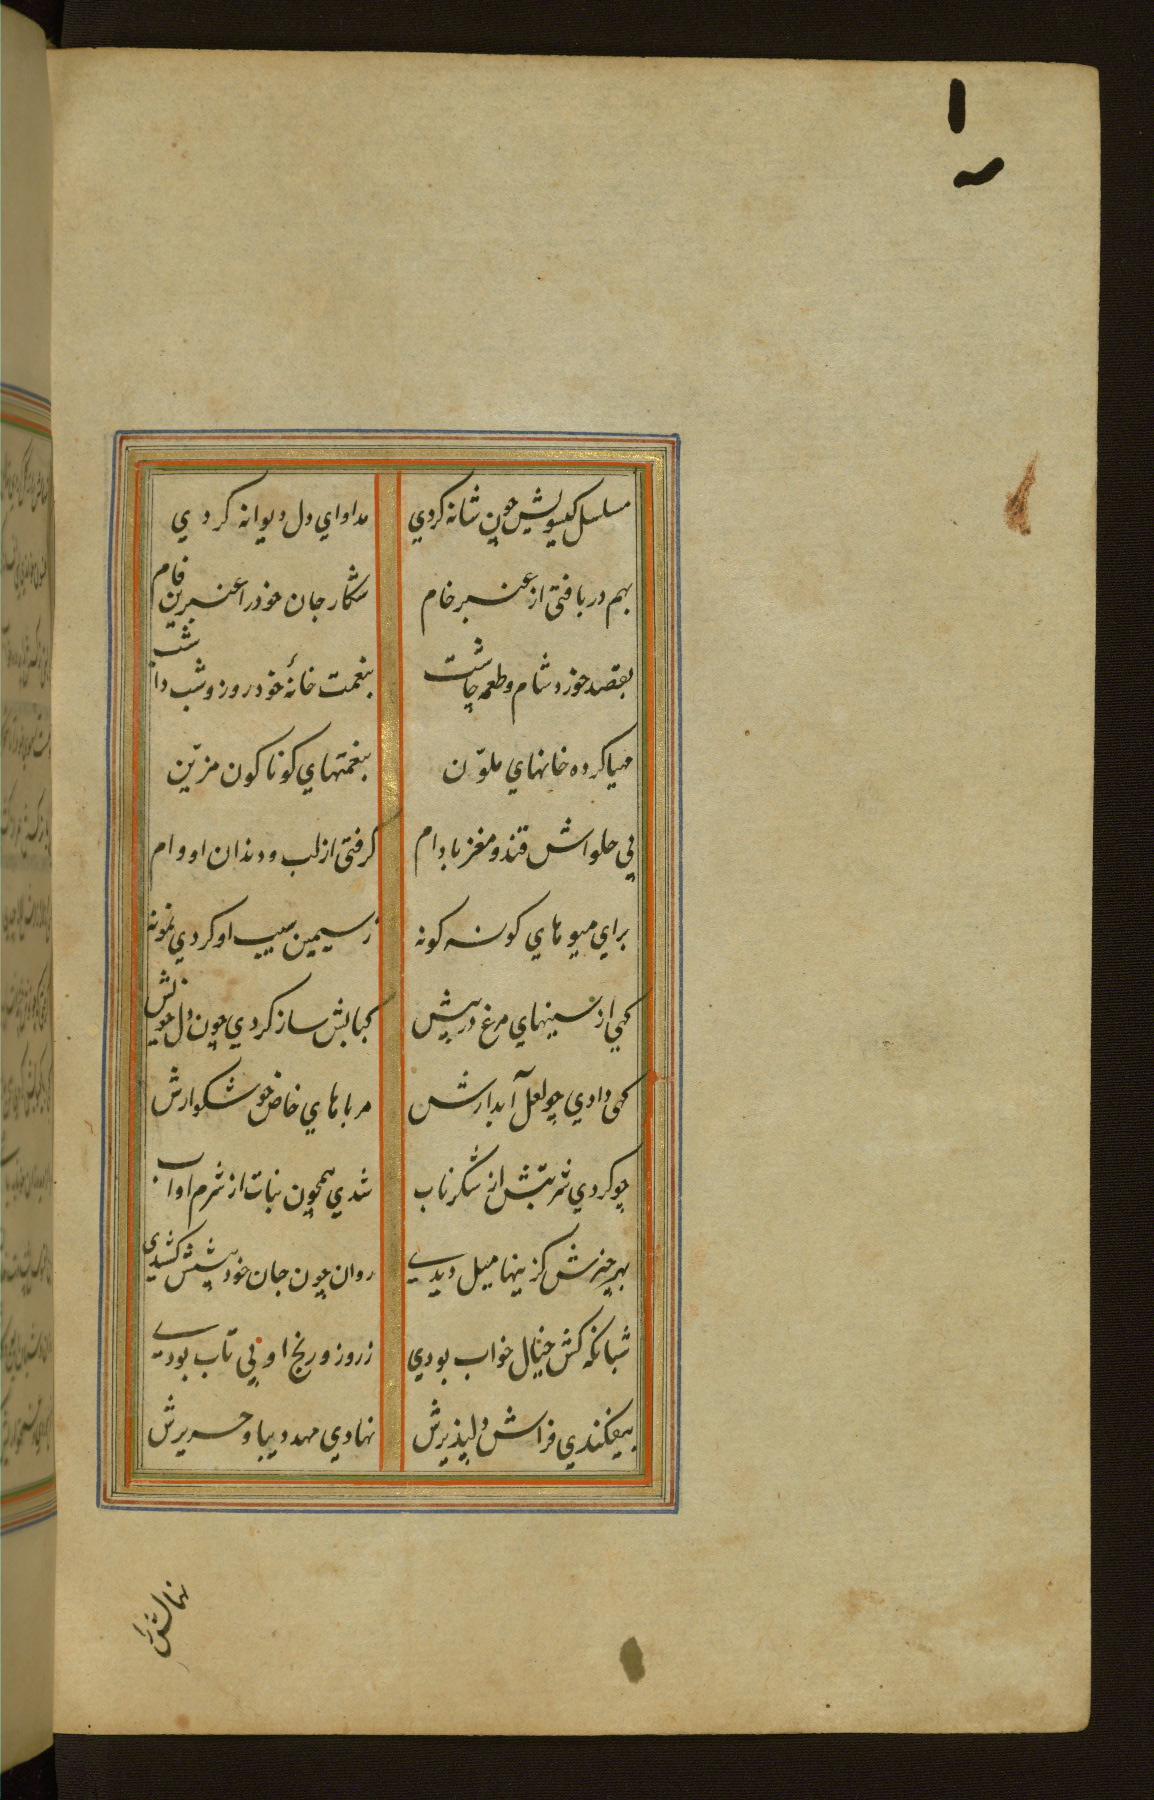 مسلسل کیسویش چون شانه کردي مداواي دل دیوانه کردي
بهم دربافتی از عنبر خام شکار جان خود را عنبرین فام
بقصد خورد شام و طعمه چاشت بنعمت خانهٔ خود روز و شب داشت
مهیا کرده خانهاي ملوّن بنعمتهاي کوناکون مزیّن
پي حلواش قند و مغز بادام کرفتی از لب و دندان او وام
براي میوهاي کونه کونه ز سیمین سیب او کردي نمونه
کهي از سینهاي مرغ در پیش کبابش ساز کردي چون دل خویش
کهی دادي چو لعل آبدارش مرباهاي خاص خوشکوارش
چو کردي شربتش از شکر ناب شدي همچون نبات از شرم او آب
بهر چیزش کزینها میل دیدے روان چون جان خود پیشش کشیدي
شبانکه کش خیال خواب بودي ز روز و رنج او بي تاب بودے
بیفکندي فراش دلپذیرش نهادي مهد دیبا و حریرش
نهالش را